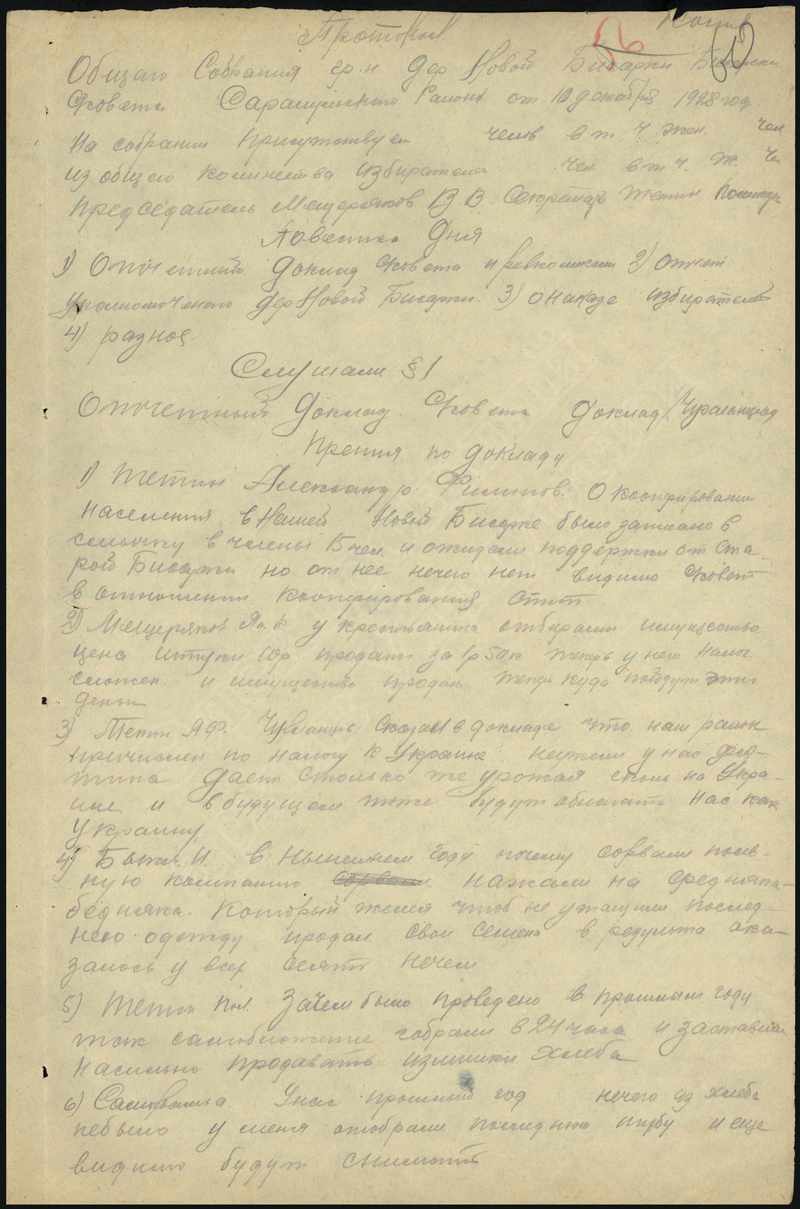 Копия
Протокол
Общего Собрания гр-н дер Новой Бисарки
Совета Сарашинского Района от 10 декабря 1928 год
На собрании присутствует челов в т ч. жен. чел
из общего количества избирателей чел в т ч. ж. че
Председатель Мещеряков В В. Секретарь Тетин
Повестка Дня
1) Отчетный доклад Совета и ревкомиссии 2) отчет
Уполномоченого дер Новой Бисарки. 3) о наказе избирателей
4) разное
Слушали § 1
Отчетный Доклад Совета доклад
Прения по докладу
1) Тетин Александр Филипов. О кооперировании
населения в нашей Новой Бисарке было записано в
в члены 5 чел. и ожидали поддержки от Ста-
рой Бисарки но от нее нечего нет видимо Совет
в отношении кооперирования спит
2) Мещеряков Як. Ф у крестьянина отбирали имущество
цена штуки 10р продали за 1р 50к теперь у него налог
сложен и имущество продан теперь куда пойдут эти
деньги
3) Тетин А.Ф. сказал в докладе что наш район
причислен по налогу к Украине неужели у нас деся-
тина дает столько же урожая сколь на Укра-
ине и в будущем тоже будут облагать нас как
Украину
4) И. в нынешнем году почему сорвали посев-
ную кампанию нажали на средняка
бедняка. Который жалея чтоб не утащили послед-
нею одежду продал свои семена в результа ока-
залось у всех сеять нечем
5) Тетин Пол. Зачем было проведено в прошлом году
самообложение собрали в 24 часа и заставили
насильно продавать излишки хлеба
6) У нас прошлый год нечего из хлеба
небыло у меня отобрали последнию шубу и еще
видимо будут снимать